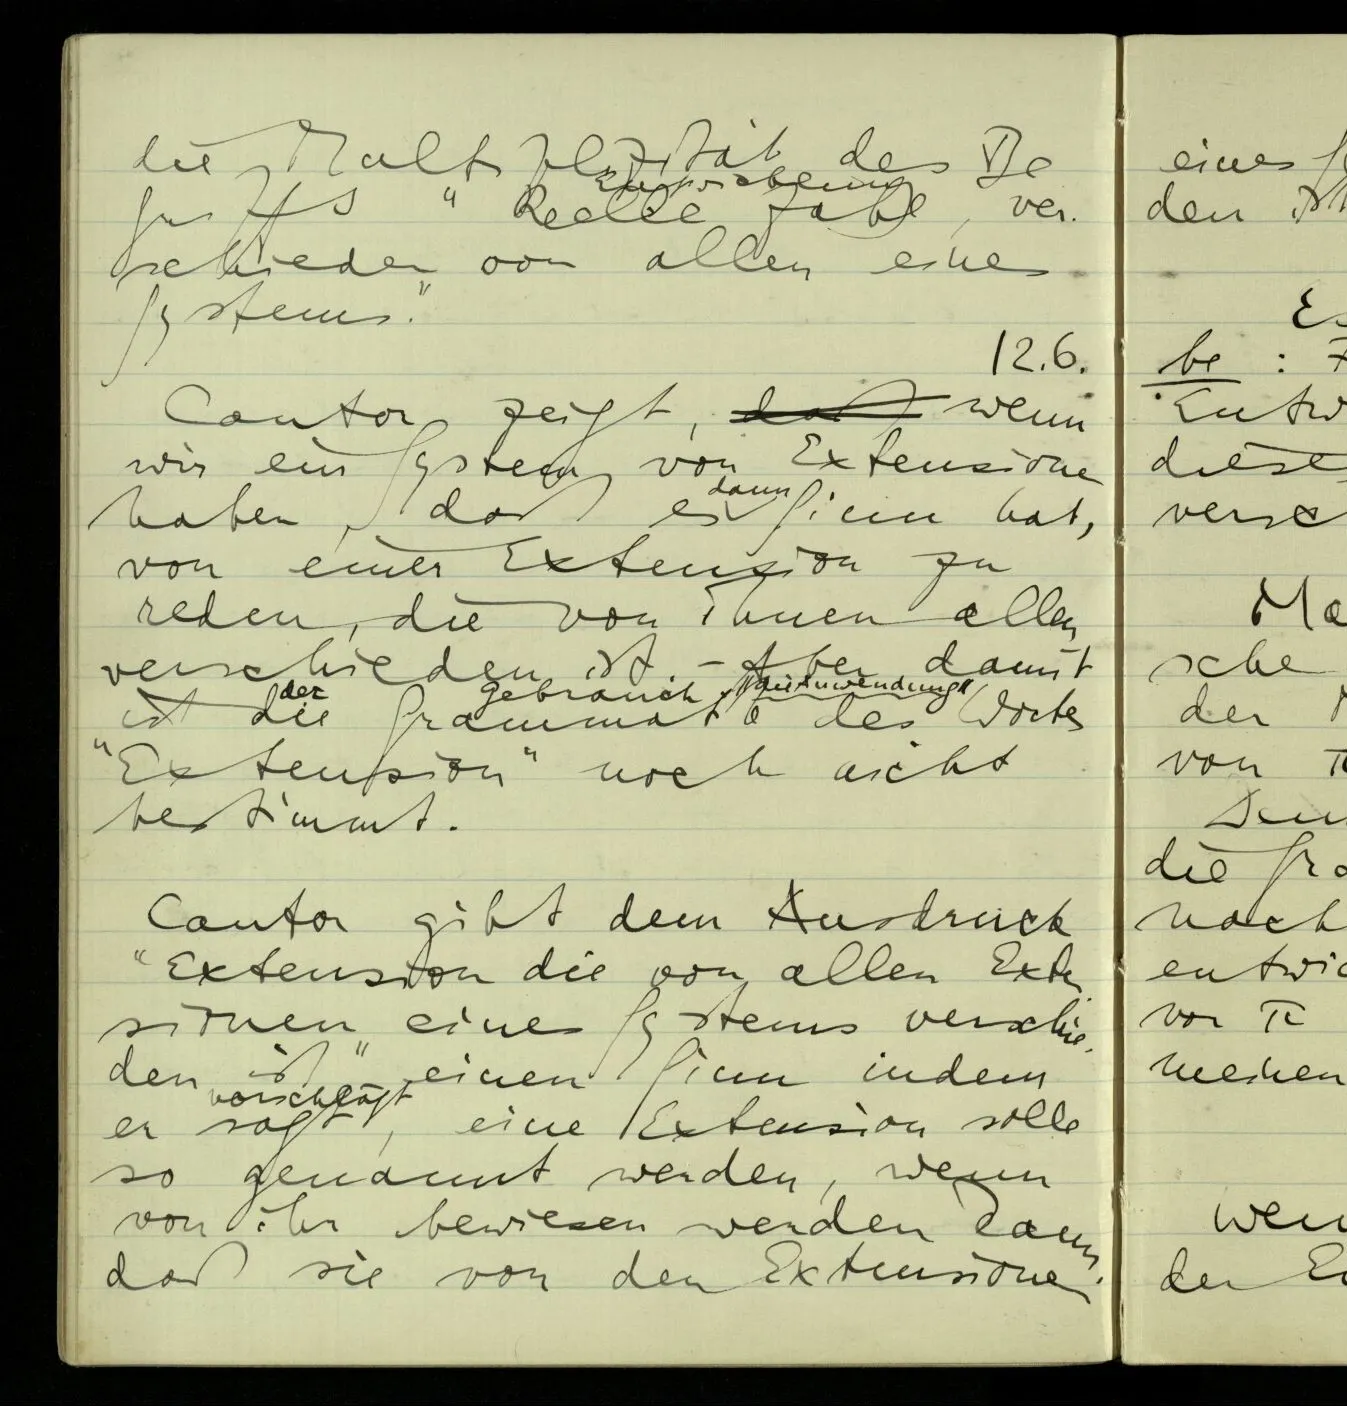 die Multiplizität des Be
griffs "Reelle Zahl, ver-
Entwicklung
schieden von allen eines
Systems."
12.6.
Cantor zeigt, daß wenn
wir ein System von Extensionen
haben, daß es dann Sinn hat,
von einer Extension zu
reden, die von ihnen allen
verschieden ist. – Aber damit
der Gebrauch "die Anwendung"
ist die Grammatik des Wortes
"Extension" noch nicht
bestimmt.
Cantor gibt dem Ausdruck
"Extension die von allen Exten-
sionen eines Systems verschie-
den ist" einen Sinn indem
vorschlägt
er sagt, eine Extension solle
so genannt werden, wenn
von ihr bewiesen werden kann,
daß sie von den Extensionen
eines
den
be :
Entw
diese
versch
Ma
sche
der
von π
die Gra
nach
entwic
vor π
meinen
wen
der